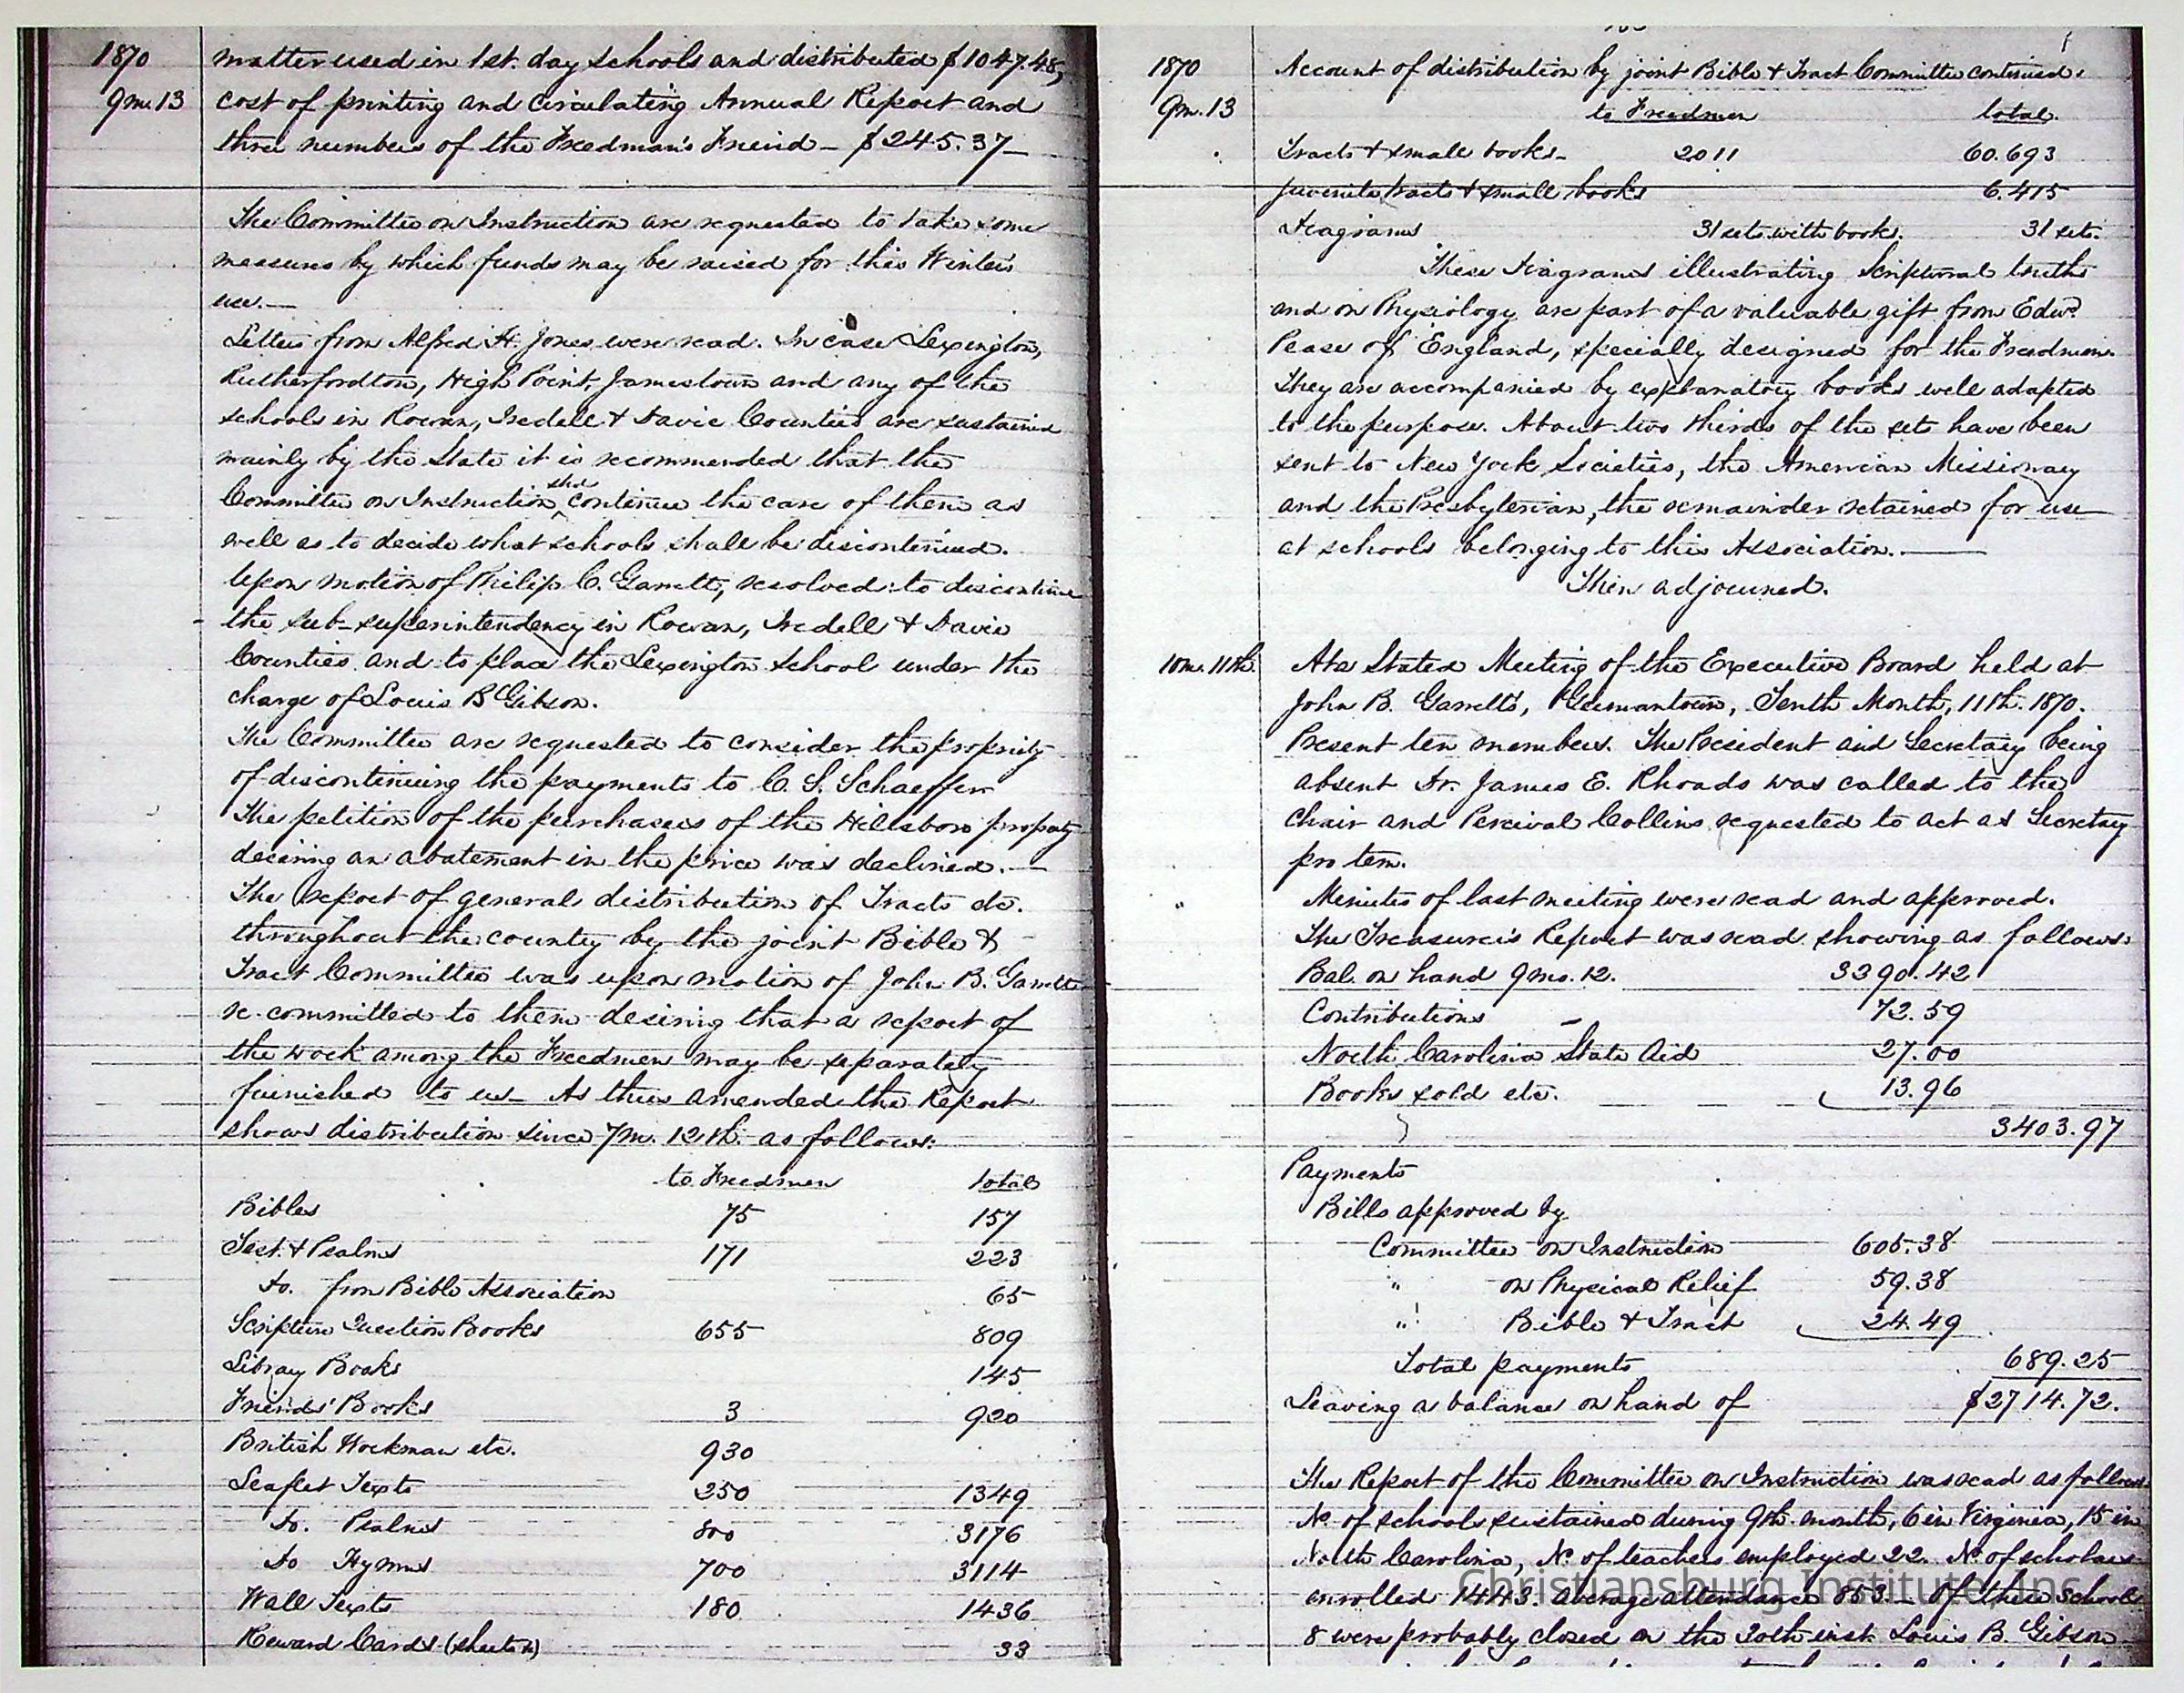 1870 matter used in 1st. day schools and distributed $1047.48,
9mo. 13 cost of printing and circulating Annual Report and
three numbers of the Freedman's Friend - $245.37-
The Committee on Instruction are requested to take some
measures by which funds may be raised for this Winter's
use.—
Letters from Alfred H. Jones were read. In case Lexington,
Rutherfordton, High Point, Jamestown and any of the
schools in Rowan, Iredell & Davie Counties are sustained
mainly by the State it is recommended that the
Committee on Instruction shd continue the care of them as
well as to decide what schools shall be discontinued.
Upon motion of Philip C. Garrett, resolved: to discontinue
the sub-superintendency in Rowan, Iredell & Davie
Counties and to place the Lexington school under the
charge of Louis B Gibson.
The Committee are requested to consider the propriety
of discontinuing the payments to C. S. Schaeffer
The petition of the purchasers of the Hillsboro property
desiring an abatement in the price was declined.—
The report of general distribution of Tracts &c.
throughout the country by the joint Bible &
Tract Committee was upon motion of John B. Garrett
re-committed to them desiring that a report of
the work among the Freedmen may be separately
furnished to us- As thus amended the Report
shows distribution since 7mo. 12th. as follows:
to Freedmen total
Bibles 75 157
Test. & Psalms 171 223
Do. from Bible Association 65
Scripture Question Books 655 809
Library Books 145
Friends' Books 3 920
British Workman etc. 930
Leaflet Texts 250 1349
Do. Psalms 800 3176
Do Hymns 700 3114
Wall Texts 180 1436
Reward Cards (sheets) 33
1870 Account of distribution by joint Bible & Tract Committee continued.
9mo. 13 to Freedmen total.
Tracts & small books- 2011 60.693
Juvenile tracts & small books 6.415
Diagrams 31 sets with books. 31 sets.
These Diagrams illustrating Scriptural truths
and on Physiology are part of a valuable gift from Edwd.
Pease of England, specially designed for the Freedmen.
They are accompanied by explanatory books well adapted
to the purpose. About two thirds of the sets have been
sent to New York Societies, the American Missionary
and the Presbyterian, the remainder retained for use
at schools belonging to this Association.—
Then adjourned.
10mo. 11th. At a Stated Meeting of the Executive Board held at
John B. Garrett's, Germantown, Tenth Month, 11th. 1870.
Present ten members. The President and Secretary being
absent Dr. James E. Rhoads was called to the
Chair and Percival Collins requested to act as Secretary
pro tem.
" Minutes of last meeting were read and approved.
The Treasurer's Report was read showing as follows:
Bal. on hand 9mo. 12. 3290.42
Contributions - 72.59
North Carolina State Aid 27.00
Books sold etc. 13.96
3403.97
Payments
Bills approved by
Committee on Instruction 605.38
" on Physical Relief 59.38
" Bible & Tract 24.49
Total payments 689.25
Leaving a balance on hand of $2714.72.
The Report of the Committee on Instruction was read as follows
No. of schools sustained during 9th. month, 6 in Virginia, 15 in
North Carolina, No. of teachers employed 22. No. of scholars
enrolled 1443. average attendance 853.- Of these Schools
8 were probably closed on the 30th inst. Louis B. Gibson
Christiansburg Institute, Inc.